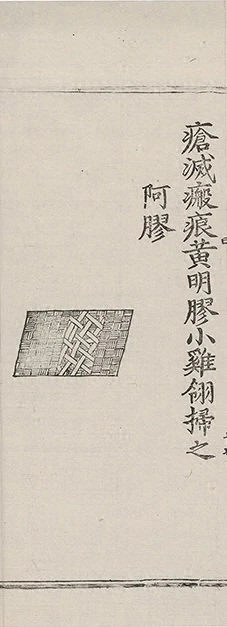 瘡滅瘢痕黃明膠小雞翎掃之
阿膠